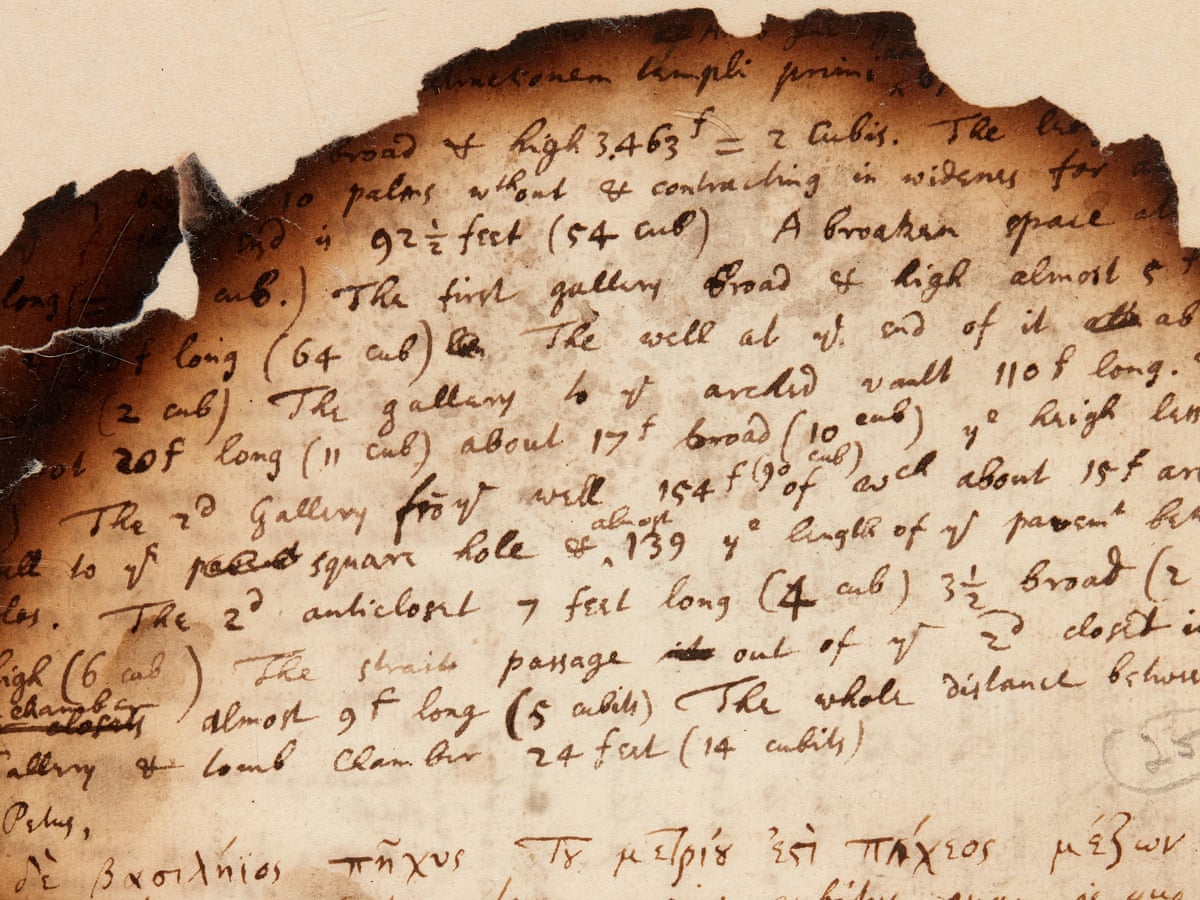 templi primi
broad & high 3.463f = 2 Cubis. The
10 palms wthout & contracting in widenes for
end is 92½ feet (54 cub) A broaken space
long ( cub.) The first gallery broad & high almost 5 f
f long (64 cub) The well at ye end of it ab
(2 cub) The gallery to ye arched vault 110f long.
20f long (11 cub) about 17f broad (10 cub) ye heigh less
The 2d Gallery frō ye well 154f (90 cub) of wch about 15f are
all to ye square hole & almost 139 ye length of ye pavemt bet
les. The 2d anticloset 7 feet long (4 cub) 3½ broad (2
high (6 cub) The strait passage out of ye 2d closet in
chamber
closets almost 9f long (5 cubits) The whole distance betwe
Gallery & tomb Chamber 24 feet (14 cubits)
Petus,
δὲ βασιλήϊος πῆχυς τȣ μετρίȣ ἐστὶ πήχεος μέζων
25